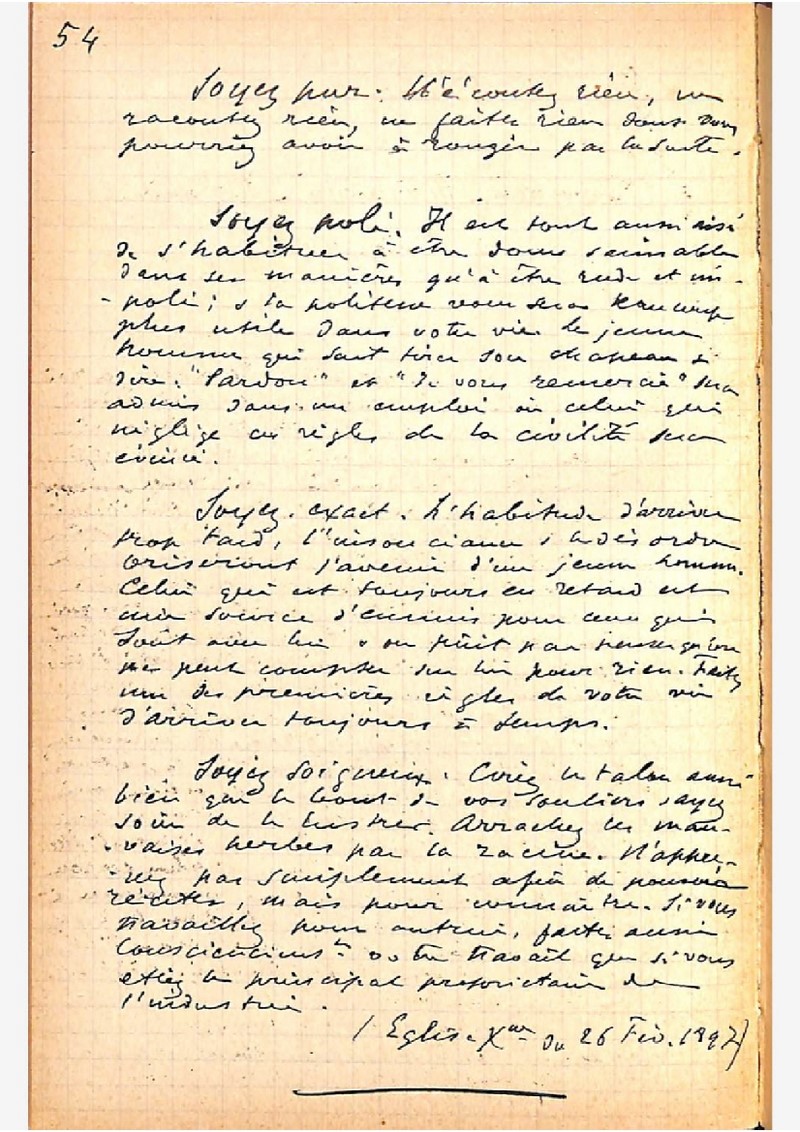 54
Soyez pur. N'écoutez rien, ne
racontez rien, ne faites rien dont vous
pourriez avoir à rougir par la suite.
Soyez poli. Il est tout aussi aisé
de s'habituer à être doux & aimable
dans ses manières qu'à être rude et im-
-poli; & la politesse vous sera beaucoup
plus utile dans votre vie. Le jeune
homme qui sait tirer son chapeau &
dire: "Pardon" et "Je vous remercie" sera
admis dans un emploi où celui qui
néglige ces règles de la civilité sera
évincé.
Soyez exact. L'habitude d'arriver
trop tard, l'insouciance & le désordre
briseront l'avenir d'un jeune homme.
Celui qui est toujours en retard est
une source d'ennuis pour ceux qui
sont avec lui & on finit par penser qu'on
ne peut compter sur lui pour rien. Faites
une des premières règles de votre vie
d'arriver toujours à temps.
Soyez soigneux. Cirez le talon aussi
bien que le bout de vos souliers & ayez
soin de le lustrer. Arrachez les mau-
-vaises herbes par la racine. N'appre-
-nez pas simplement afin de pouvoir
réciter, mais pour connaître. Si vous
travaillez pour autrui, faites aussi
consciencieusᵗ votre travail que si vous
étiez le principal propriétaire de
l'industrie.
(Eglise Xᵐᵉ du 26 Fév. 1897)